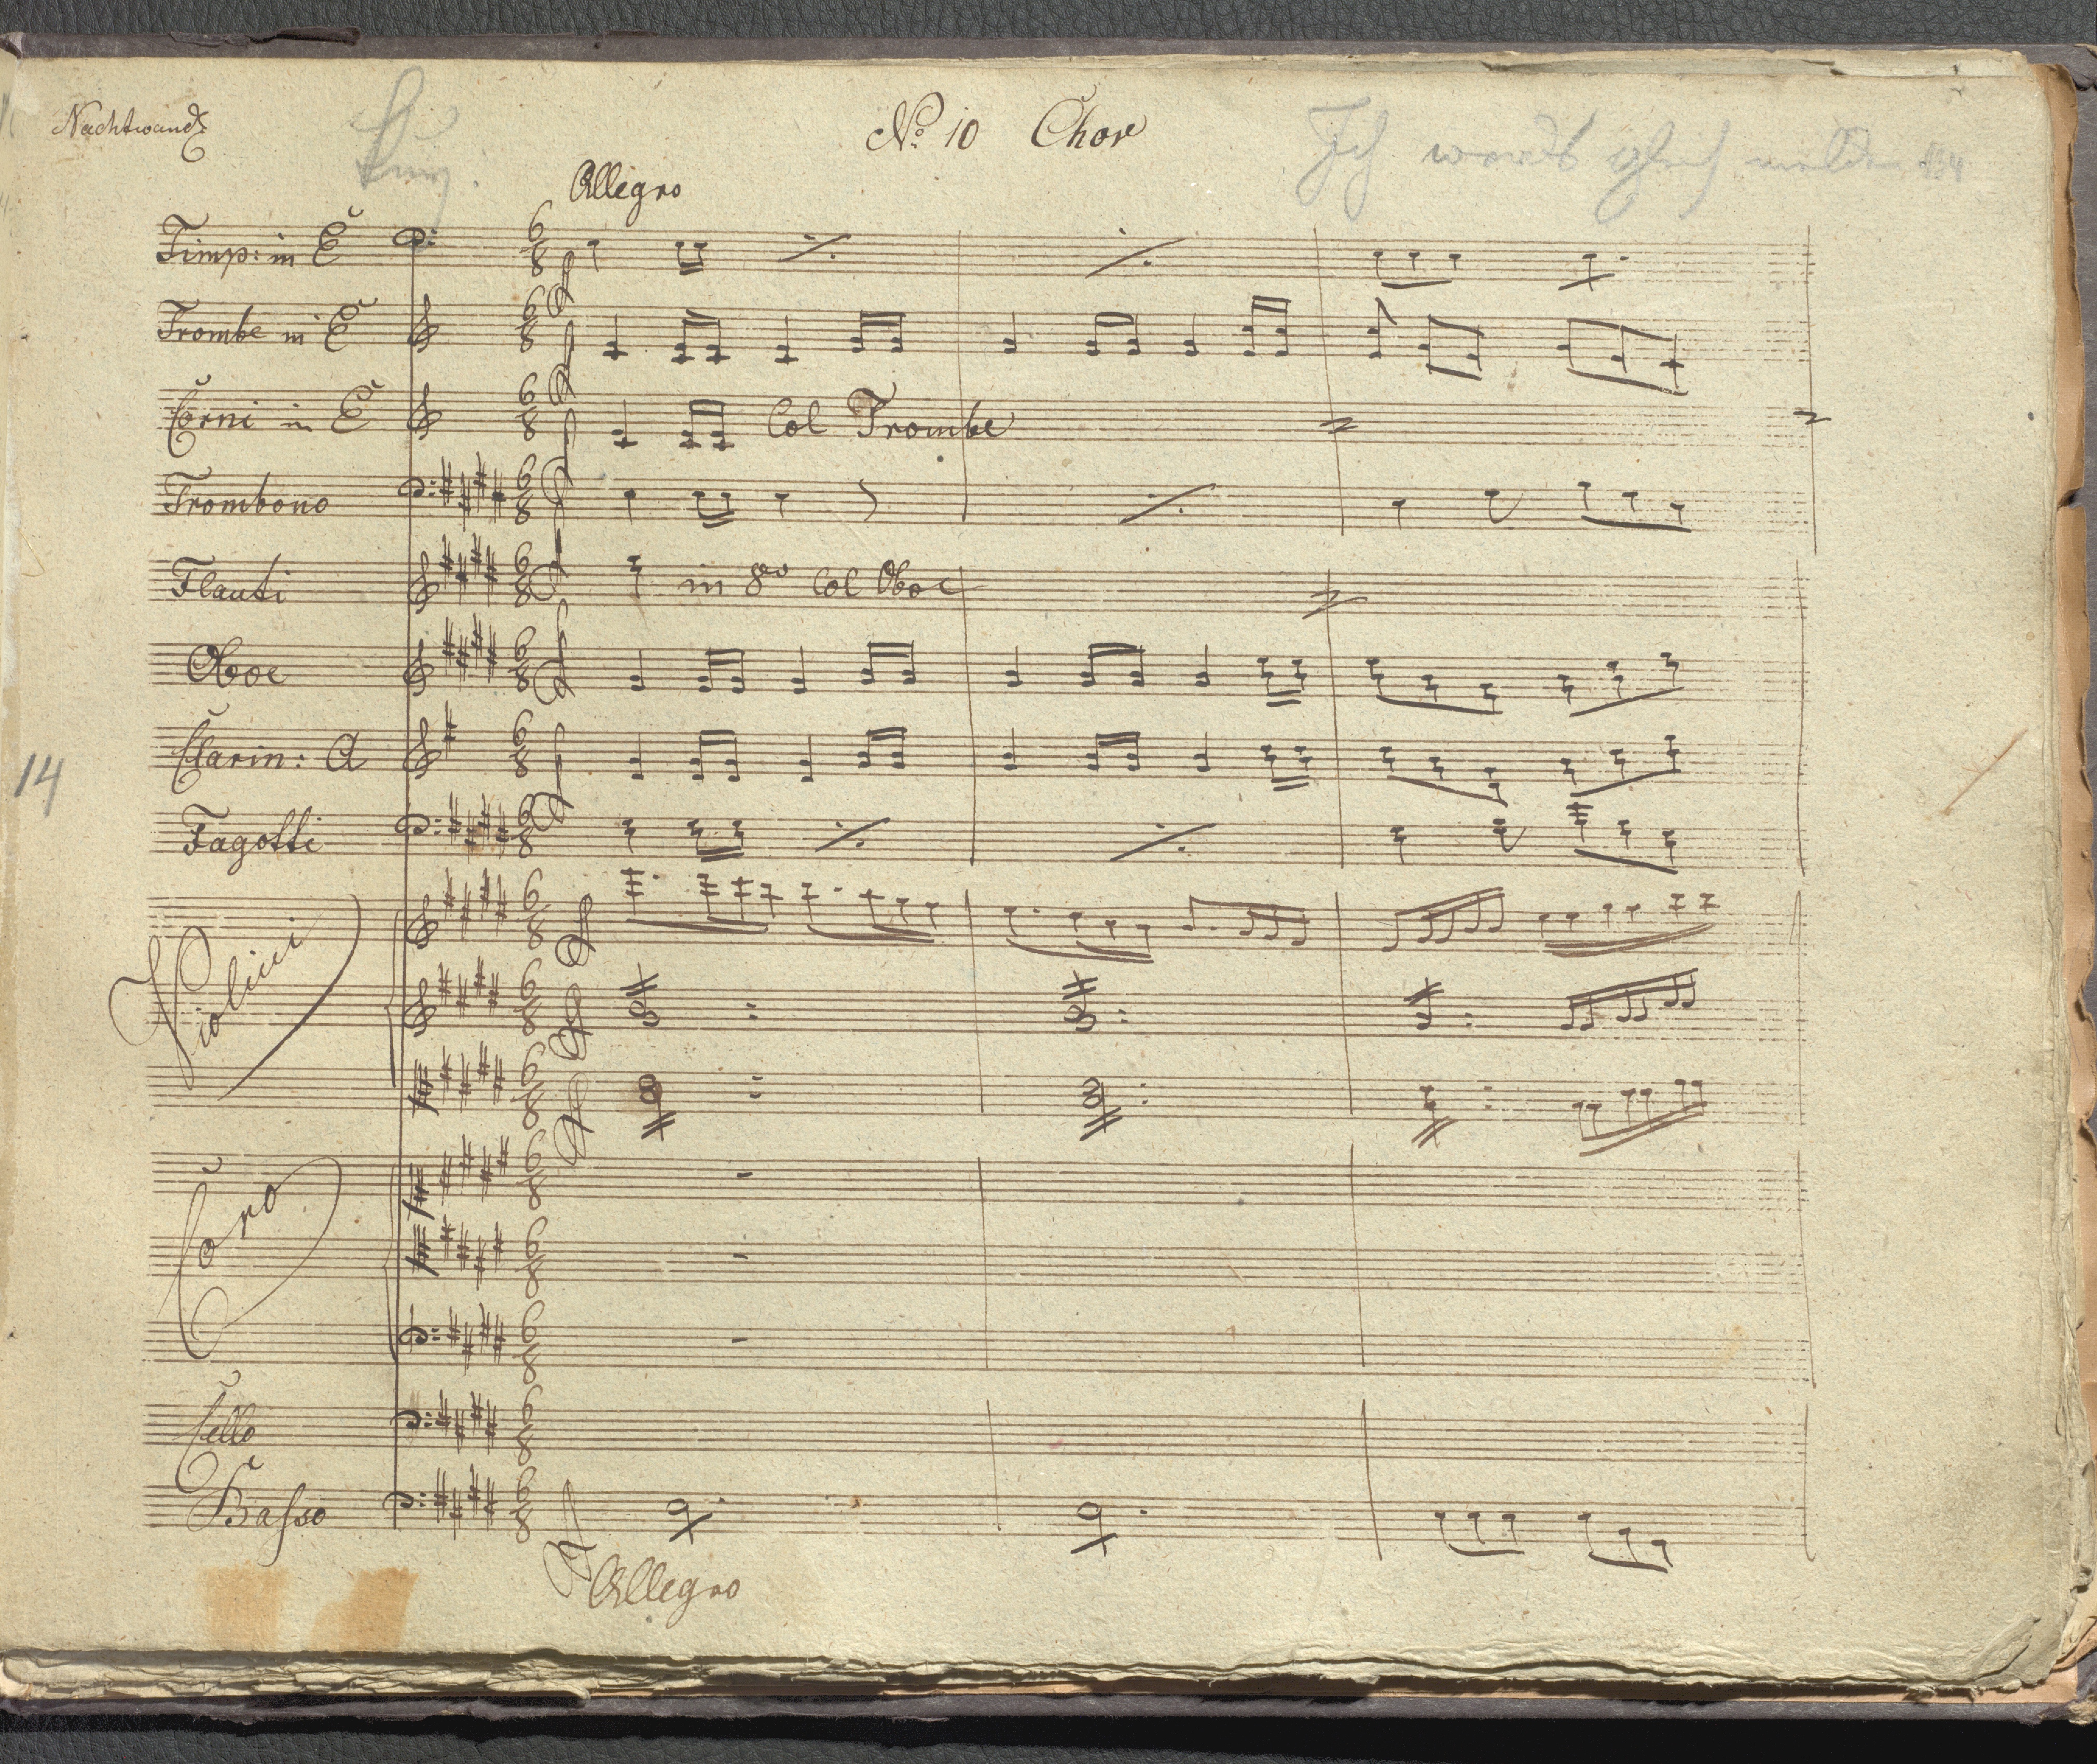 Nachtwand:
No: 10 Chor
Ich werds gleich melden
Allegro
Timp: in E
Trombe in E
Corni in E
Col Trombe
Trombono
Flauti
in 8vo Col Oboe
Oboe
Clarin: A
14
Fagotti
Violini
Coro
Cello
Basso
Allegro